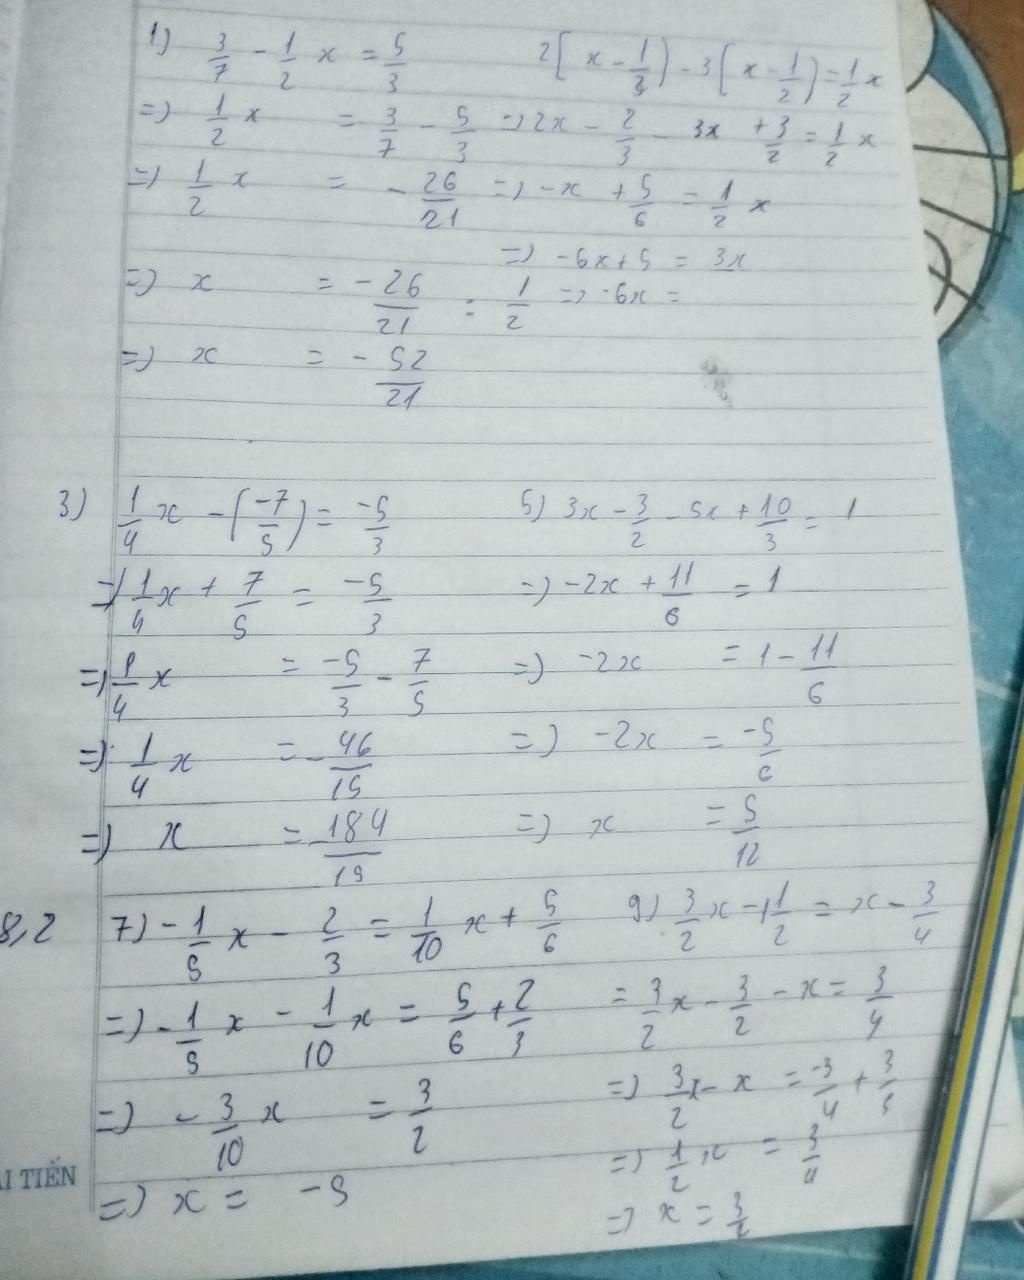 1) 3/7 - 1/2 x = 5/3
=) 1/2 x = 3/7 - 5/3
=) 1/2 x = - 26/21
=) x = - 26/21 : 1/2
=) x = - 52/21
2( x - 1/3 ) - 3( x - 1/2 ) = 1/2 x
=) 2x - 2/3 - 3x + 3/2 = 1/2 x
=) -x + 5/6 = 1/2 x
=) -6x + 5 = 3x
=) -6x =
3) 1/4 x - ( -7/5 ) = -5/3
=) 1/4 x + 7/5 = -5/3
=) 1/4 x = -5/3 - 7/5
=) 1/4 x = - 46/15
=) x = - 184/15
5) 3x - 3/2 - 5x + 10/3 = 1
=) -2x + 11/6 = 1
=) -2x = 1 - 11/6
=) -2x = -5/6
=) x = 5/12
8,2
7) - 1/5 x - 2/3 = 1/10 x + 5/6
=) - 1/5 x - 1/10 x = 5/6 + 2/3
=) - 3/10 x = 3/2
=) x = -5
9) 3/2 x - 1 1/2 = x - 3/4
= 3/2 x - 3/2 - x = 3/4
=) 3/2 x - x = -3/4 + 3/2
=) 1/2 x = 3/4
=) x = 3/2
TIẾN